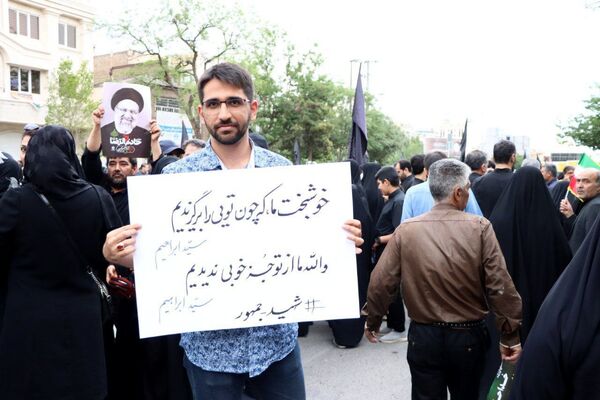 خادم الرضا
خوشبخت ما، که چون تویی را برگزیدیم
سید ابراهیم
والله ما از تو جز خوبی ندیدیم
سید ابراهیم
#شهید_جمهور